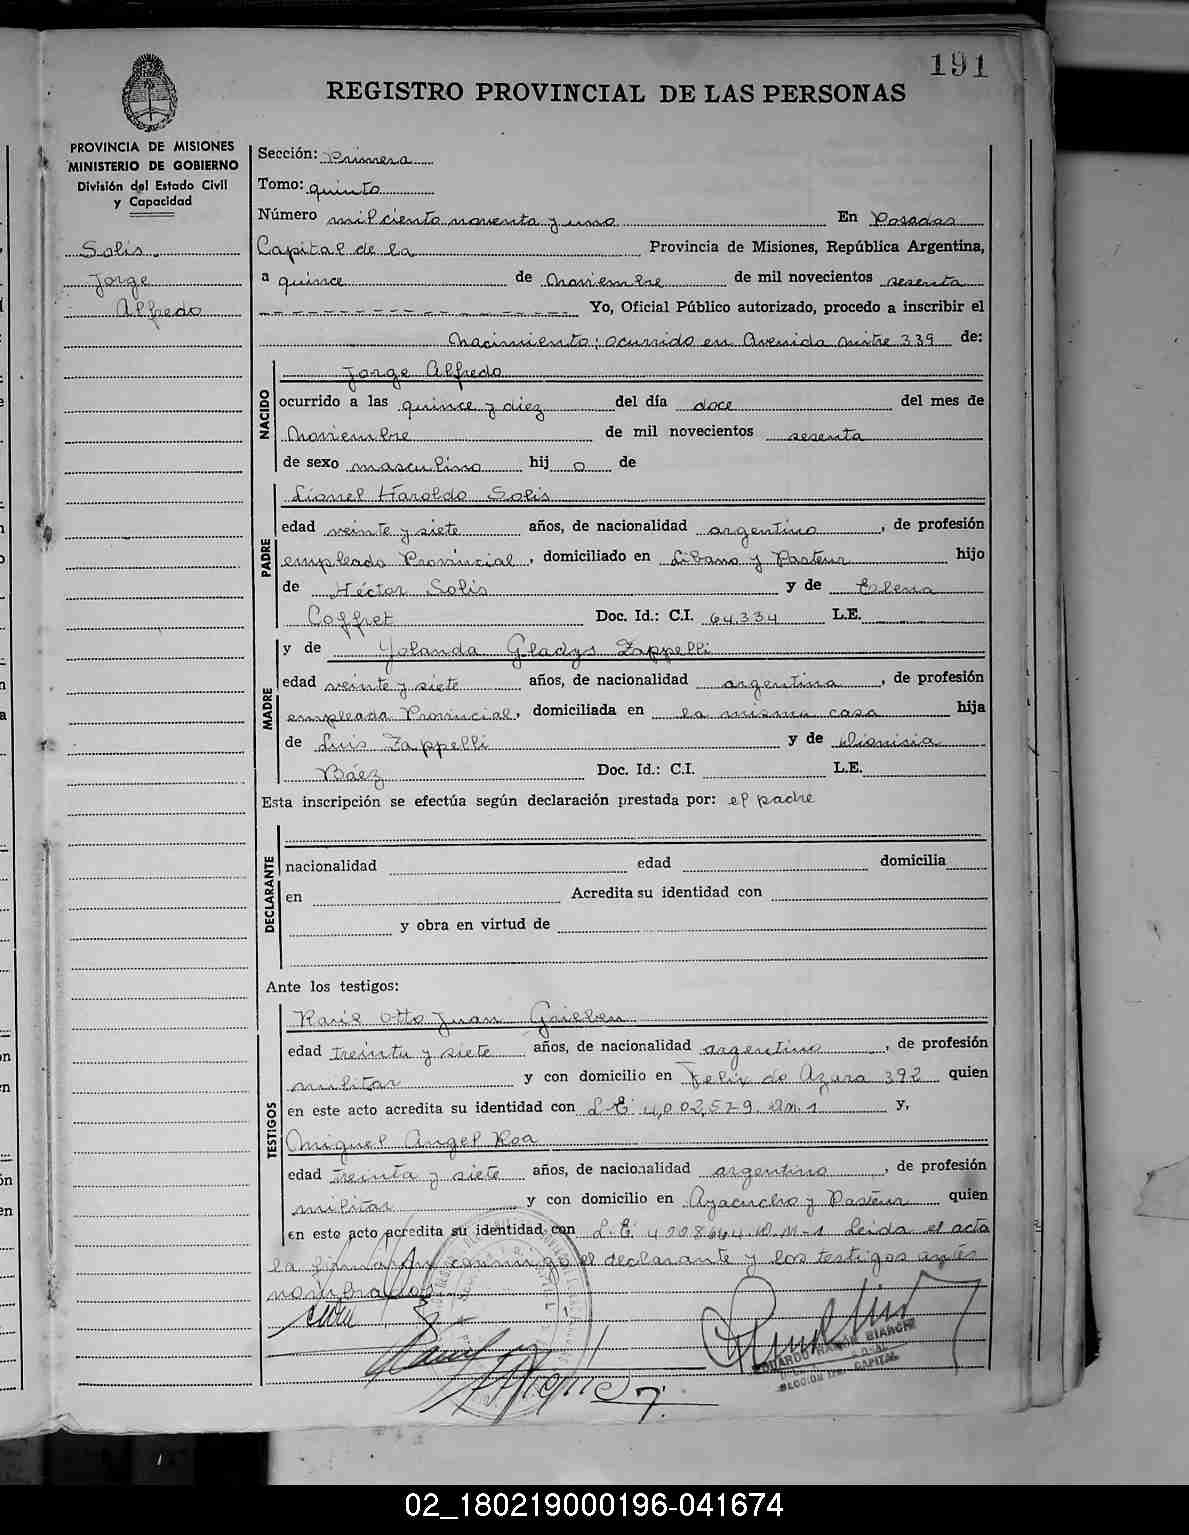 191
REGISTRO PROVINCIAL DE LAS PERSONAS
PROVINCIA DE MISIONES
MINISTERIO DE GOBIERNO
División del Estado Civil
y Capacidad
Solis
Jorge
Alfredo
Sección: Primera
Tomo: quinto
Número mil ciento noventa y uno En Posadas
Capital de la Provincia de Misiones, República Argentina,
a quince de Noviembre de mil novecientos sesenta
Yo, Oficial Público autorizado, procedo a inscribir el
Nacimiento: ocurrido en Avenida Mitre 339 de:
NACIDO
Jorge Alfredo
ocurrido a las quince y diez del día doce del mes de
Noviembre de mil novecientos sesenta
de sexo masculino hij o de
PADRE
Lionel Haroldo Solis
edad veinte y siete años, de nacionalidad argentino, de profesión
empleado Provincial, domiciliado en Libano y Pasteur hijo
de Héctor Solis y de
Coffret Doc. Id.: C.I. 64.334 L.E.
MADRE
y de Yolanda Gladys Zappelli
edad veinte y siete años, de nacionalidad argentina, de profesión
empleada Provincial, domiciliada en la misma casa hija
de Luis Zappelli y de Dionisia
Báez Doc. Id.: C.I. L.E.
Esta inscripción se efectúa según declaración prestada por: el padre
DECLARANTE
nacionalidad edad domicilia
en Acredita su identidad con
y obra en virtud de
Ante los testigos:
TESTIGOS
Raúl Otto Juan
edad treinta y siete años, de nacionalidad argentino, de profesión
militar y con domicilio en Felix de Azara 392 quien
en este acto acredita su identidad con L.E. 4.002.579 D.M.1 y,
Miguel Angel Roa
edad treinta y siete años, de nacionalidad argentino, de profesión
militar y con domicilio en Ayacucho y Pasteur quien
en este acto acredita su identidad con L.E. D.M.1 Leida el acta
la firmaron conmigo el declarante y los testigos antes
nombrados.
EDUARDO RAMON BIANCHI
SECCION 1ra. CAPITAL
02_180219000196-041674